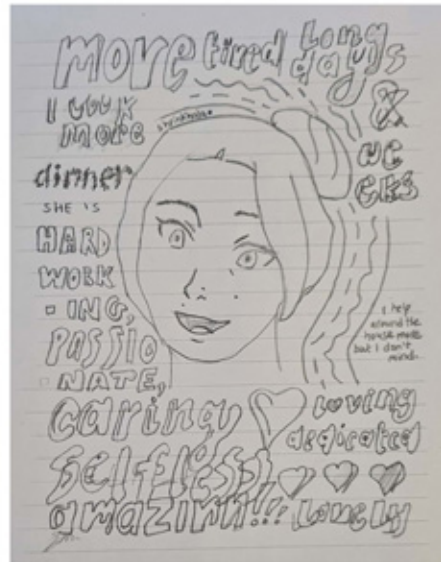 more tired long
days
&
we
eks
I cook
more
dinner
SHE IS
HARD
WORK
- ING,
PASSIO
NATE,
I help
around the
house more
but I don't
mind.
caring
loving
dedicated
selfless
amazinn!!!
Lovely